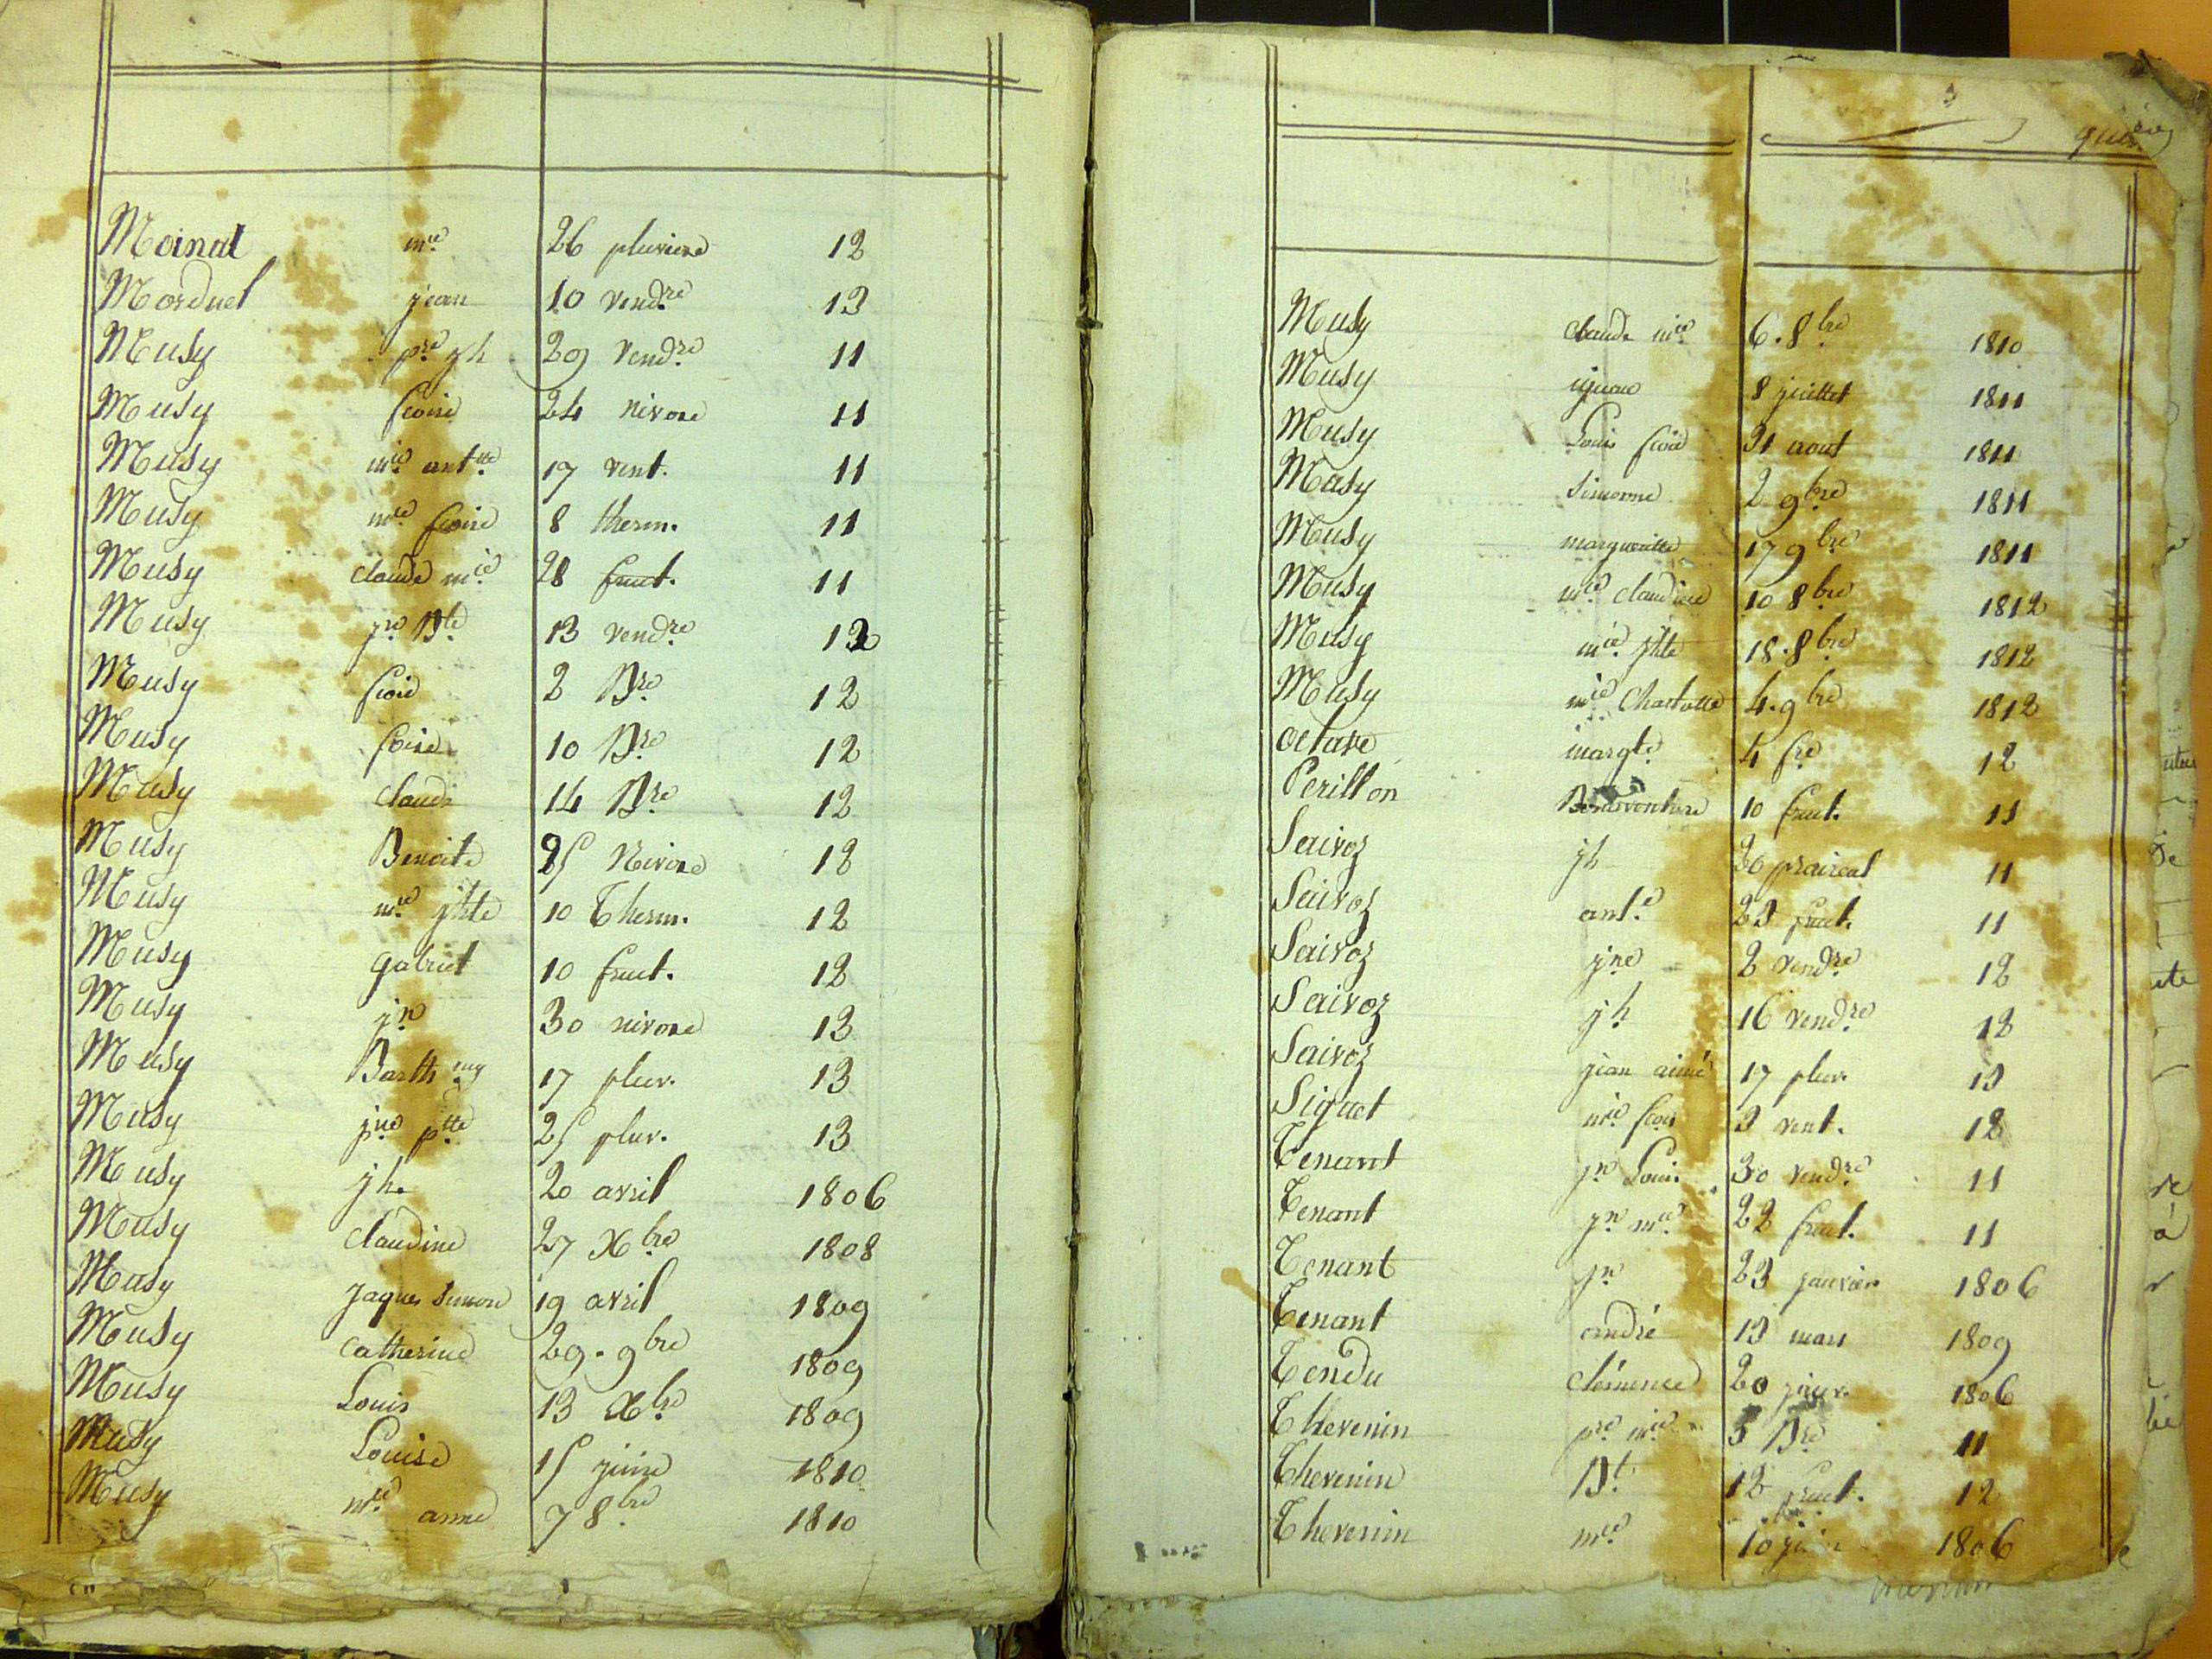 Moinat mie 26 pluviose 12
Morduel jean 10 vendre 13
Musy pre jh 29 vendre 11
Musy fcoise 24 nivose 11
Musy mie antte 17 vent. 11
Musy mie fcoise 8 therm. 11
Musy Claude mie 28 fruct. 11
Musy jn Bte 13 vendre 12
Musy fcois 2 Bre 12
Musy fcoise 10 Bre 12
Musy Claude 14 Bre 12
Musy Benoite 25 Nivose 12
Musy mie jhte 10 Therm. 12
Musy gabriel 10 fruct. 12
Musy jn 30 nivose 13
Musy Barthmy 17 pluv. 13
Musy jne ptte 25 pluv. 13
Musy jh. 20 avril 1806
Musy Claudine 27 Xbre 1808
Musy jaques Simon 19 avril 1809
Musy Catherine 29. 9bre 1809
Musy Louis 13 Xbre 1809
Musy Louise 15 juin 1810
Musy mie anne 7 8bre 1810
3
Musy Claude mie 6. 8bre 1810
Musy ignace 8 juillet 1811
Musy Louis fcois 31 aout 1811
Musy Simonne 2 9bre 1811
Musy margueritte 17 9bre 1811
Musy mie Claudine 10 8bre 1812
Musy mie jhte 18. 8bre 1812
Musy mie Charlotte 4. 9bre 1812
octave margte 4 fre 12
Perillon Bonaventure 10 fruct. 11
Saivoz jh 20 prairial 11
Saivoz ante 23 fruct. 11
Saivoz jne 2 vendre 12
Saivoz jh 16 vendre 12
Saivoz jean aimé 17 pluv. 13
Siguet mie fcois 3 vent. 12
Tenant jn Louis 30 vendre 11
Tenant jn mie 22 fruct. 11
Tenant jn 23 janvier 1806
Tenant andré 13 mars 1809
Tendu Clémence 20 janv. 1806
Thevenin pre mie 3 Bre 11
Thevenin Bt 12 fruct. 12
Thevenin mie 10 1806